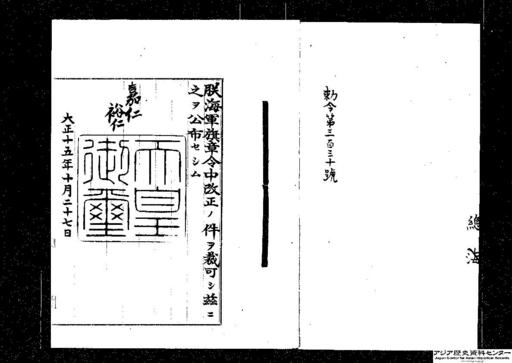 勅令第三百三十號
總
海
朕海軍旗章令中改正ノ件ヲ裁可シ茲ニ
之ヲ公布セシム
嘉仁
裕仁
天皇
御璽
大正十五年十月二十七日
アジア歴史資料センター
Japan Center for Asian Historical Records